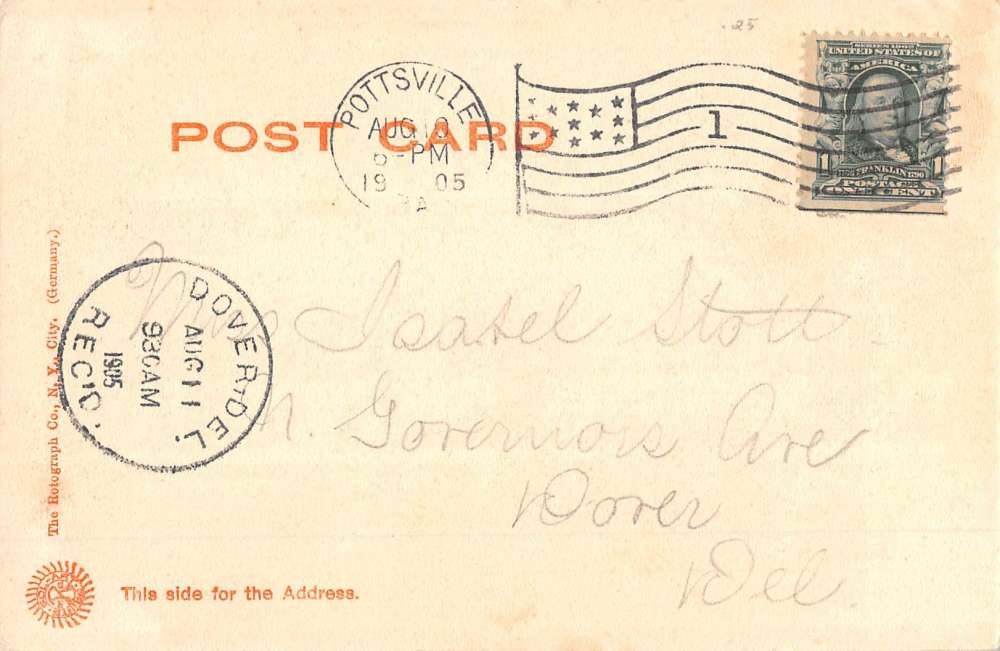 .25
SERIES 1902
UNITED STATES OF
AMERICA
1 FRANKLIN 1790 1
POSTAGE
ONE CENT
POTTSVILLE
AUG 10
-PM
19 05
PA
1
POST CARD
Miss Isabel Stott
N. Governors Ave
Dover
Del.
DOVER, DEL.
AUG 11
930AM
1905
REC'D.
The Rotograph Co., N. Y., City. (Germany.)
This side for the Address.